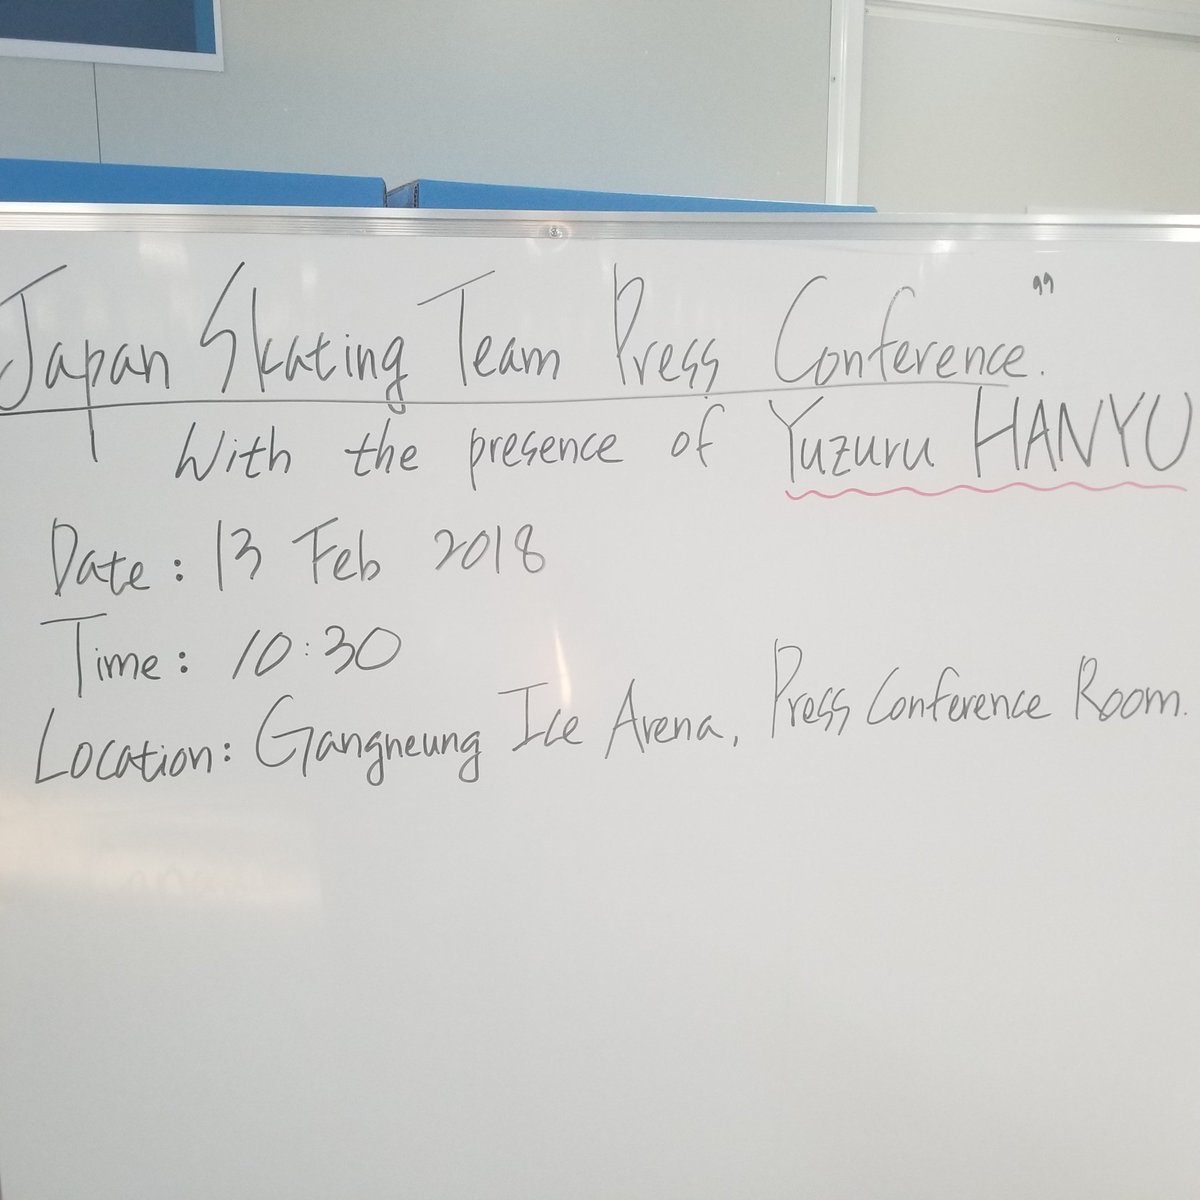 Japan Skating Team Press Conference."
With the presence of Yuzuru HANYU
Date: 13 Feb 2018
Time: 10:30
Location: Gangneung Ice Arena, Press Conference Room.